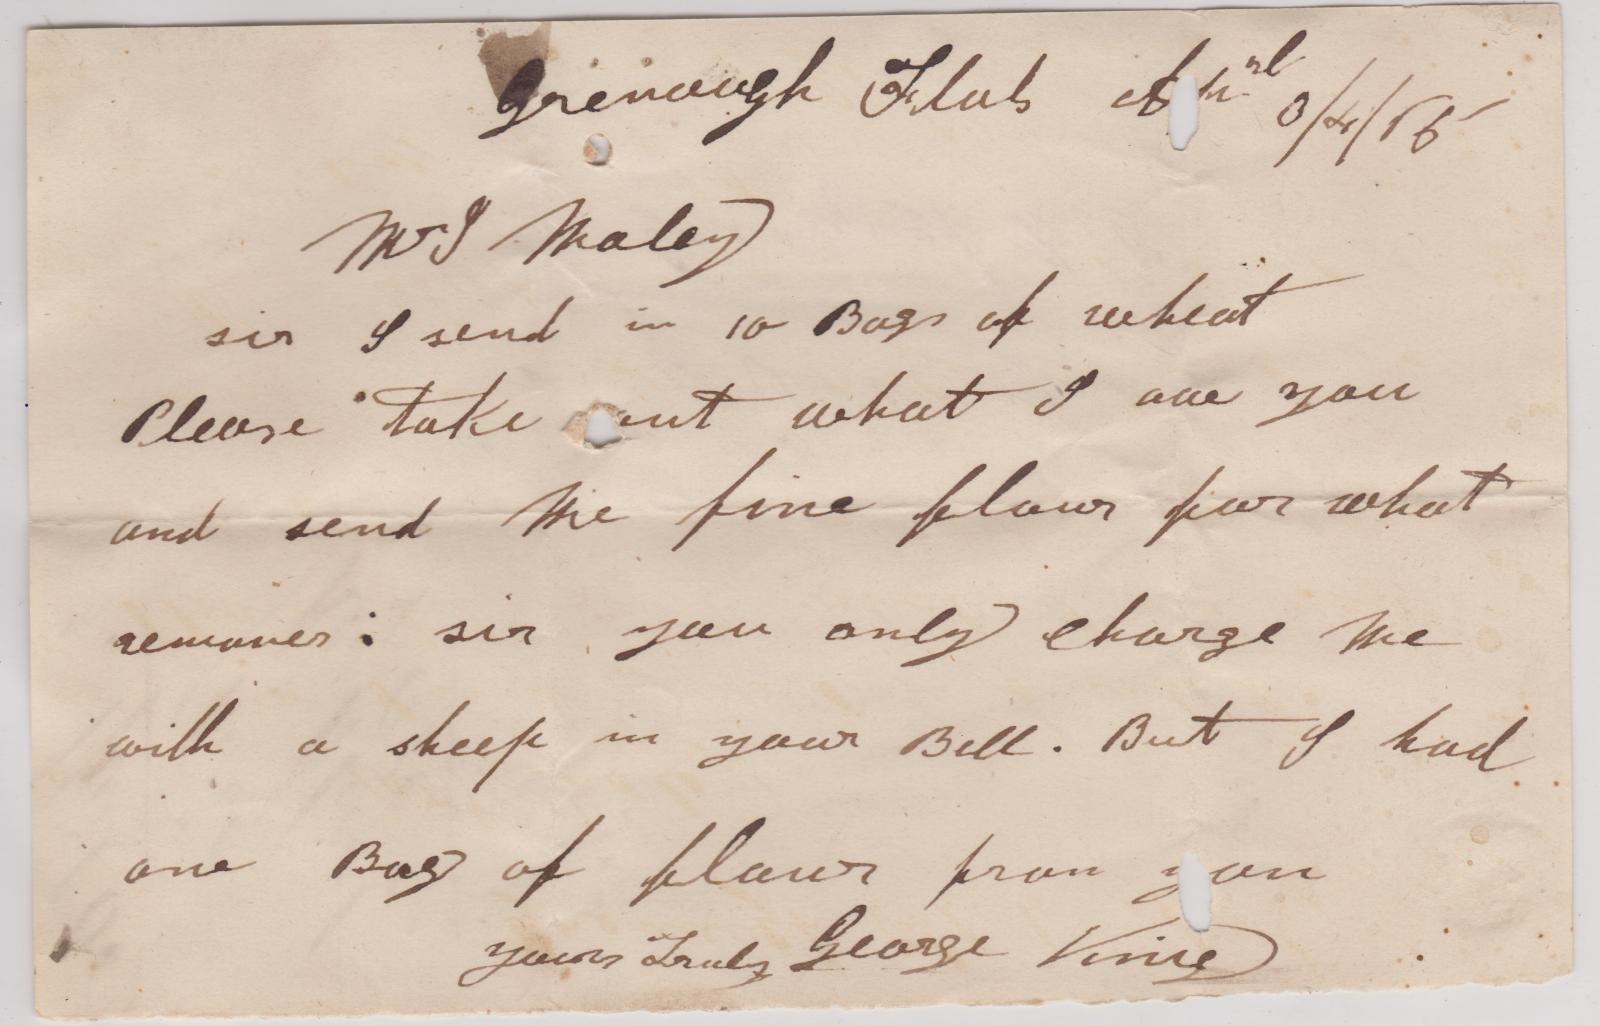 Grenough Flats Apral 8/4/86
Mr J Maley
sir I send in 10 Bags of wheat
Please take out what I owe you
and send Me fine flour for what
remanes: sir you only charge Me
with a sheep in your Bill. But I had
one Bag of flour from you
yours Truly George Vine